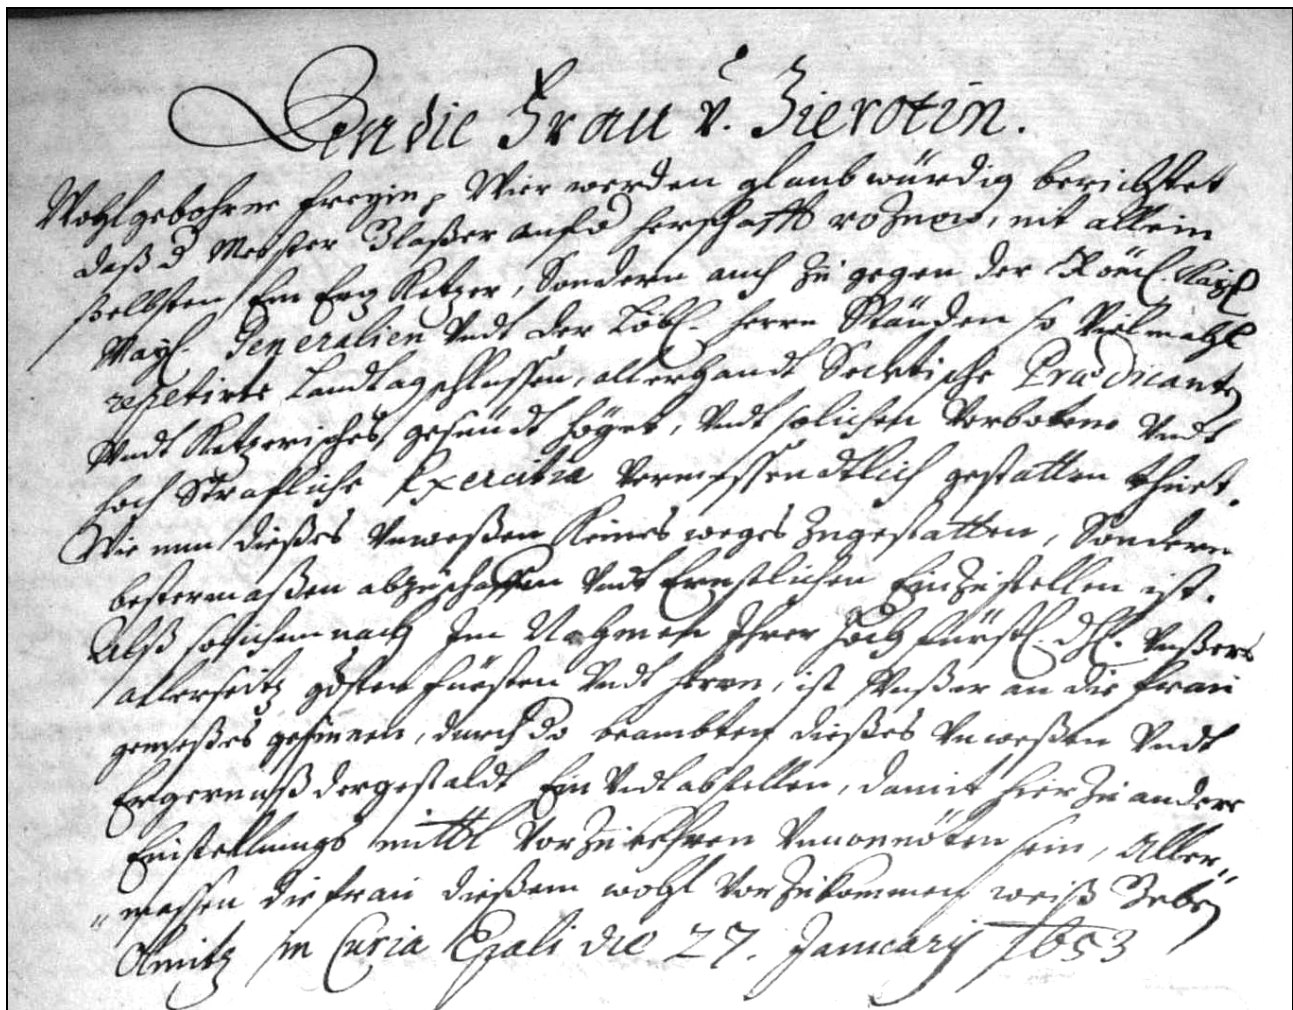 An die Frau v. Zierotin.
Wohlgebohrne Freyin, Wier werden glaubwürdig berichtet
daß d Meister Blaßer auf d herschafft rožnow, nit allein
selbsten Ein Erz Ketzer, Sondern auch zu gegen der Röm. Kay.
May. Generalien Vndt der Löbl. herrn Ständen so Vielmahl
repetirte Landtagschlussen, allerhandt Sectische Prædicanten
Vndt Ketzerisches gesindt heget, Vndt solichen Verbotene Vndt
hoch Strafliche Exercitia Vermessendtlich gestatten thuet.
Wie nun dießes Vnweßen Keines weges Zugestatten, Sondern
bestermaßen abzuschaffen Vndt Ernstlichen Einzustellen ist.
Alß solichemnach Im Nahmen Ihrer Hochfürstl. Dhl. Vnßers
allerseitz gdsten Fürsten Vndt Herrn, ist Vnßer an die Frau
gemeßes gesinnen, durch do beambten dießes Vnweßen Vndt
Ergernuß dergestaldt Ein Vndt abstellen, damit hierzu andere
Einstellungs mittl Vorzukehren Vnuonnöten sein, Aller,,
,,massen die frau dießem wohl Vorzukommen weiß Geben
Olmitz in Curia Epali die 27. Januarij 1653